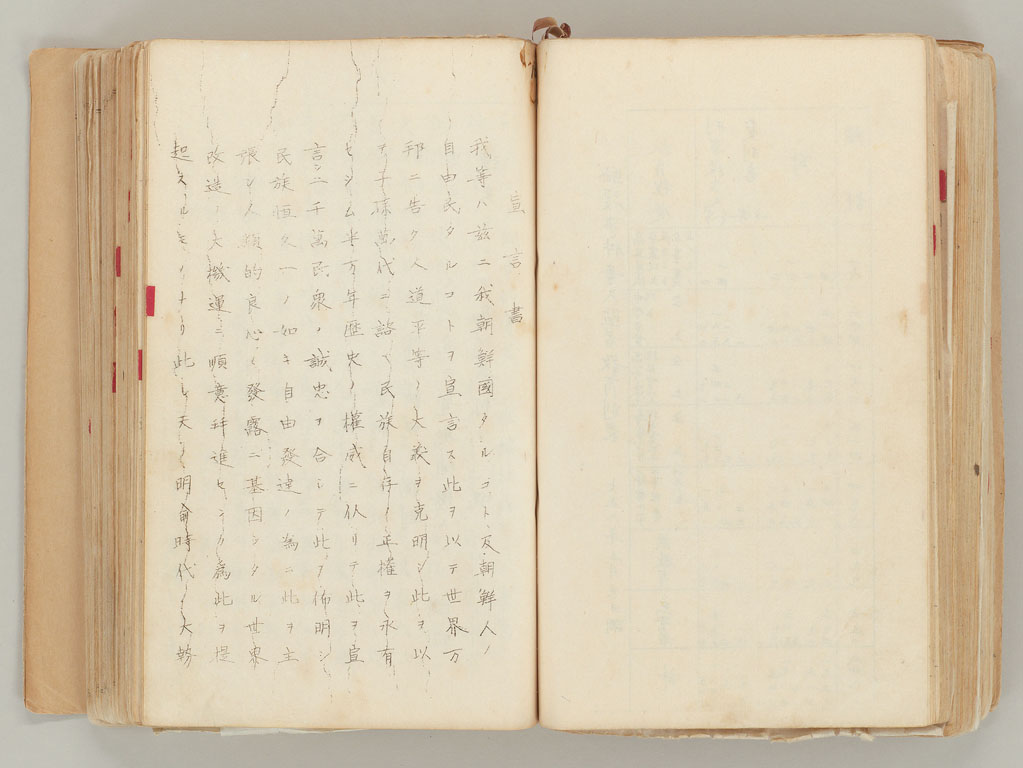 宣言書
我等ハ玆ニ我朝鮮國タルコト及朝鮮人ノ
自由民タルコトヲ宣言ス此ヲ以テ世界万
邦ニ告ク人道平等ノ大義ヲ克明シ此ヲ以
テ子孫萬代ニ誥ヘ民族自存ノ正權ヲ永有
セシム半万年歴史ノ權威ニ仗リテ此ヲ宣
言二千萬民衆ノ誠忠ヲ合シテ此ヲ佈明シ
民族恒久一ノ如キ自由発達ノ為ニ此ヲ主
張シ人類的良心ノ發露ニ基因シタル世界
改造ノ大機運ニ順應并進センカ為此ヲ提
起スルモノナリ此レ天ノ明命時代ノ大勢